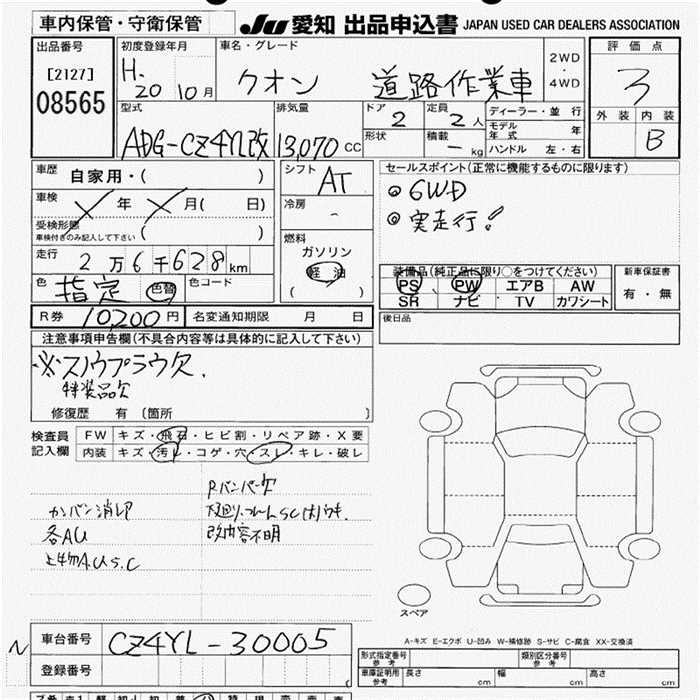 車内保管・守衛保管
JU 愛知 出品申込書 JAPAN USED CAR DEALERS ASSOCIATION
出品番号
[2127]
08565
初度登録年月
H.20 10月
車名・グレード
クオン 道路作業車
2WD
・
4WD
評価点
3
外装 内装
B
型式
排気量
13,070 CC
ドア
2
定員
2人
形状
積載
- kg
ディーラー・並行
モデル年式 年
ハンドル 左・右
車歴
自家用・( )
車検
年 月( 日)
受検形態
車検付きのみ記入して下さい ( )
走行
2万6千628km
色
指定 色替
色コード
シフト
AT
冷房
-
燃料
ガソリン
軽油
( )
セールスポイント(正常に機能するものに限ります)
◎ 6WD
◎ 実走行!
装備品(純正品に限り○をつけてください)
PS PW エアB AW
SR ナビ TV カワシート
新車保証書
有・無
R券 10,200円
名変通知期限 月 日
後日品
注意事項申告欄(不具合内容等は具体的に記入して下さい)
※スノウプラウ欠.
特装品欠
修復歴 有 〔箇所 〕
検査員
記入欄
FW キズ・飛石・ヒビ割・リペア跡・X要
内装 キズ・汚レ・コゲ・穴・スレ・キレ・破レ
Rバンパー欠
カンバン消し印
各AU
上物AUSC
改内容不明
スペア
A-キズ E-エクボ U-凹み W-補修跡 S-サビ C-腐食 XX-交換済
車台番号
CZ4YL-30005
登録番号
型式指定番号
参考
類別区分番号
参考
車庫証明用
参考
長さ cm
幅 cm
高さ cm